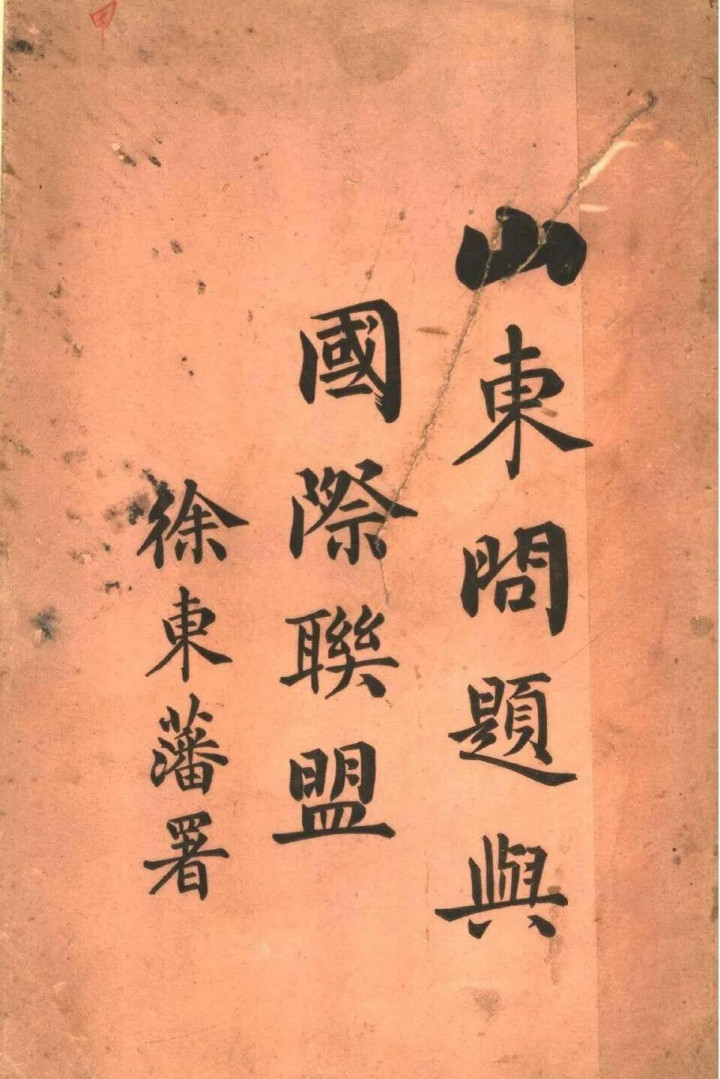 甲
山東問題與
國際聯盟
徐東藩署